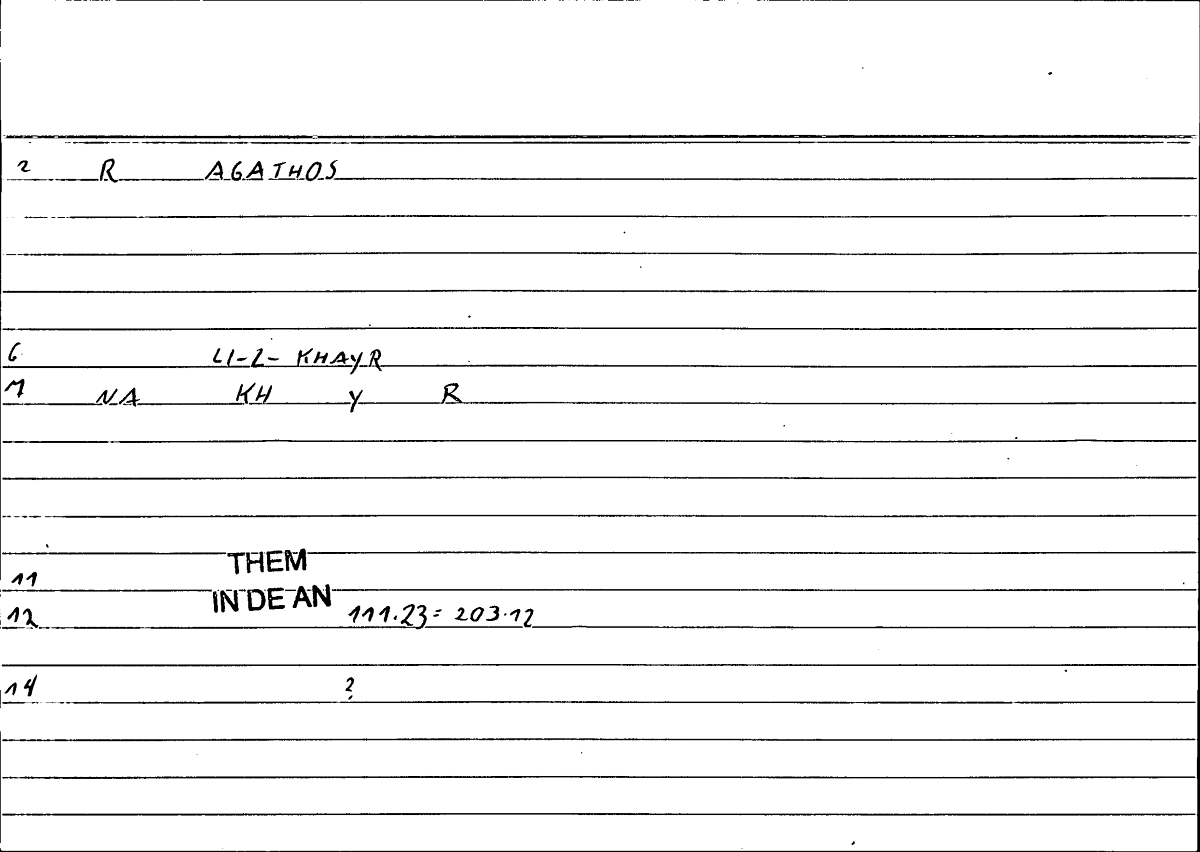 2 R AGATHOS
6 LI-L- KHAYR
7 NA KH Y R
11 THEM
12 IN DE AN 111.23 = 203.12
14 ?